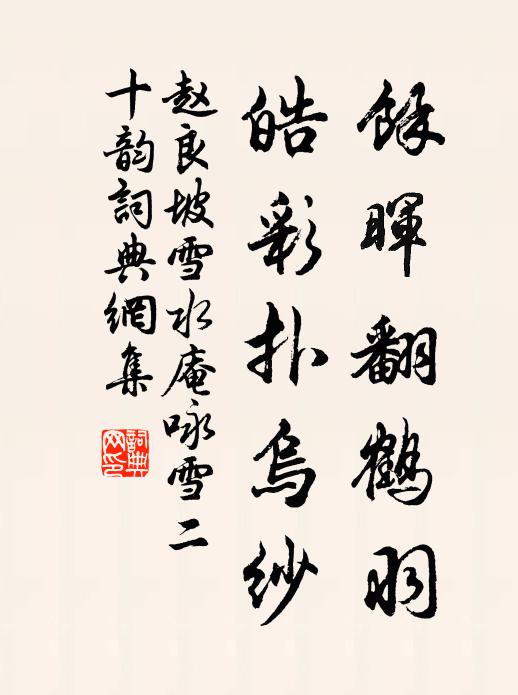 餘暉翻鶴羽
皓彩扑烏紗
赵良坡雪水庵咏雪二
十韵詞典網集
詞典
网印